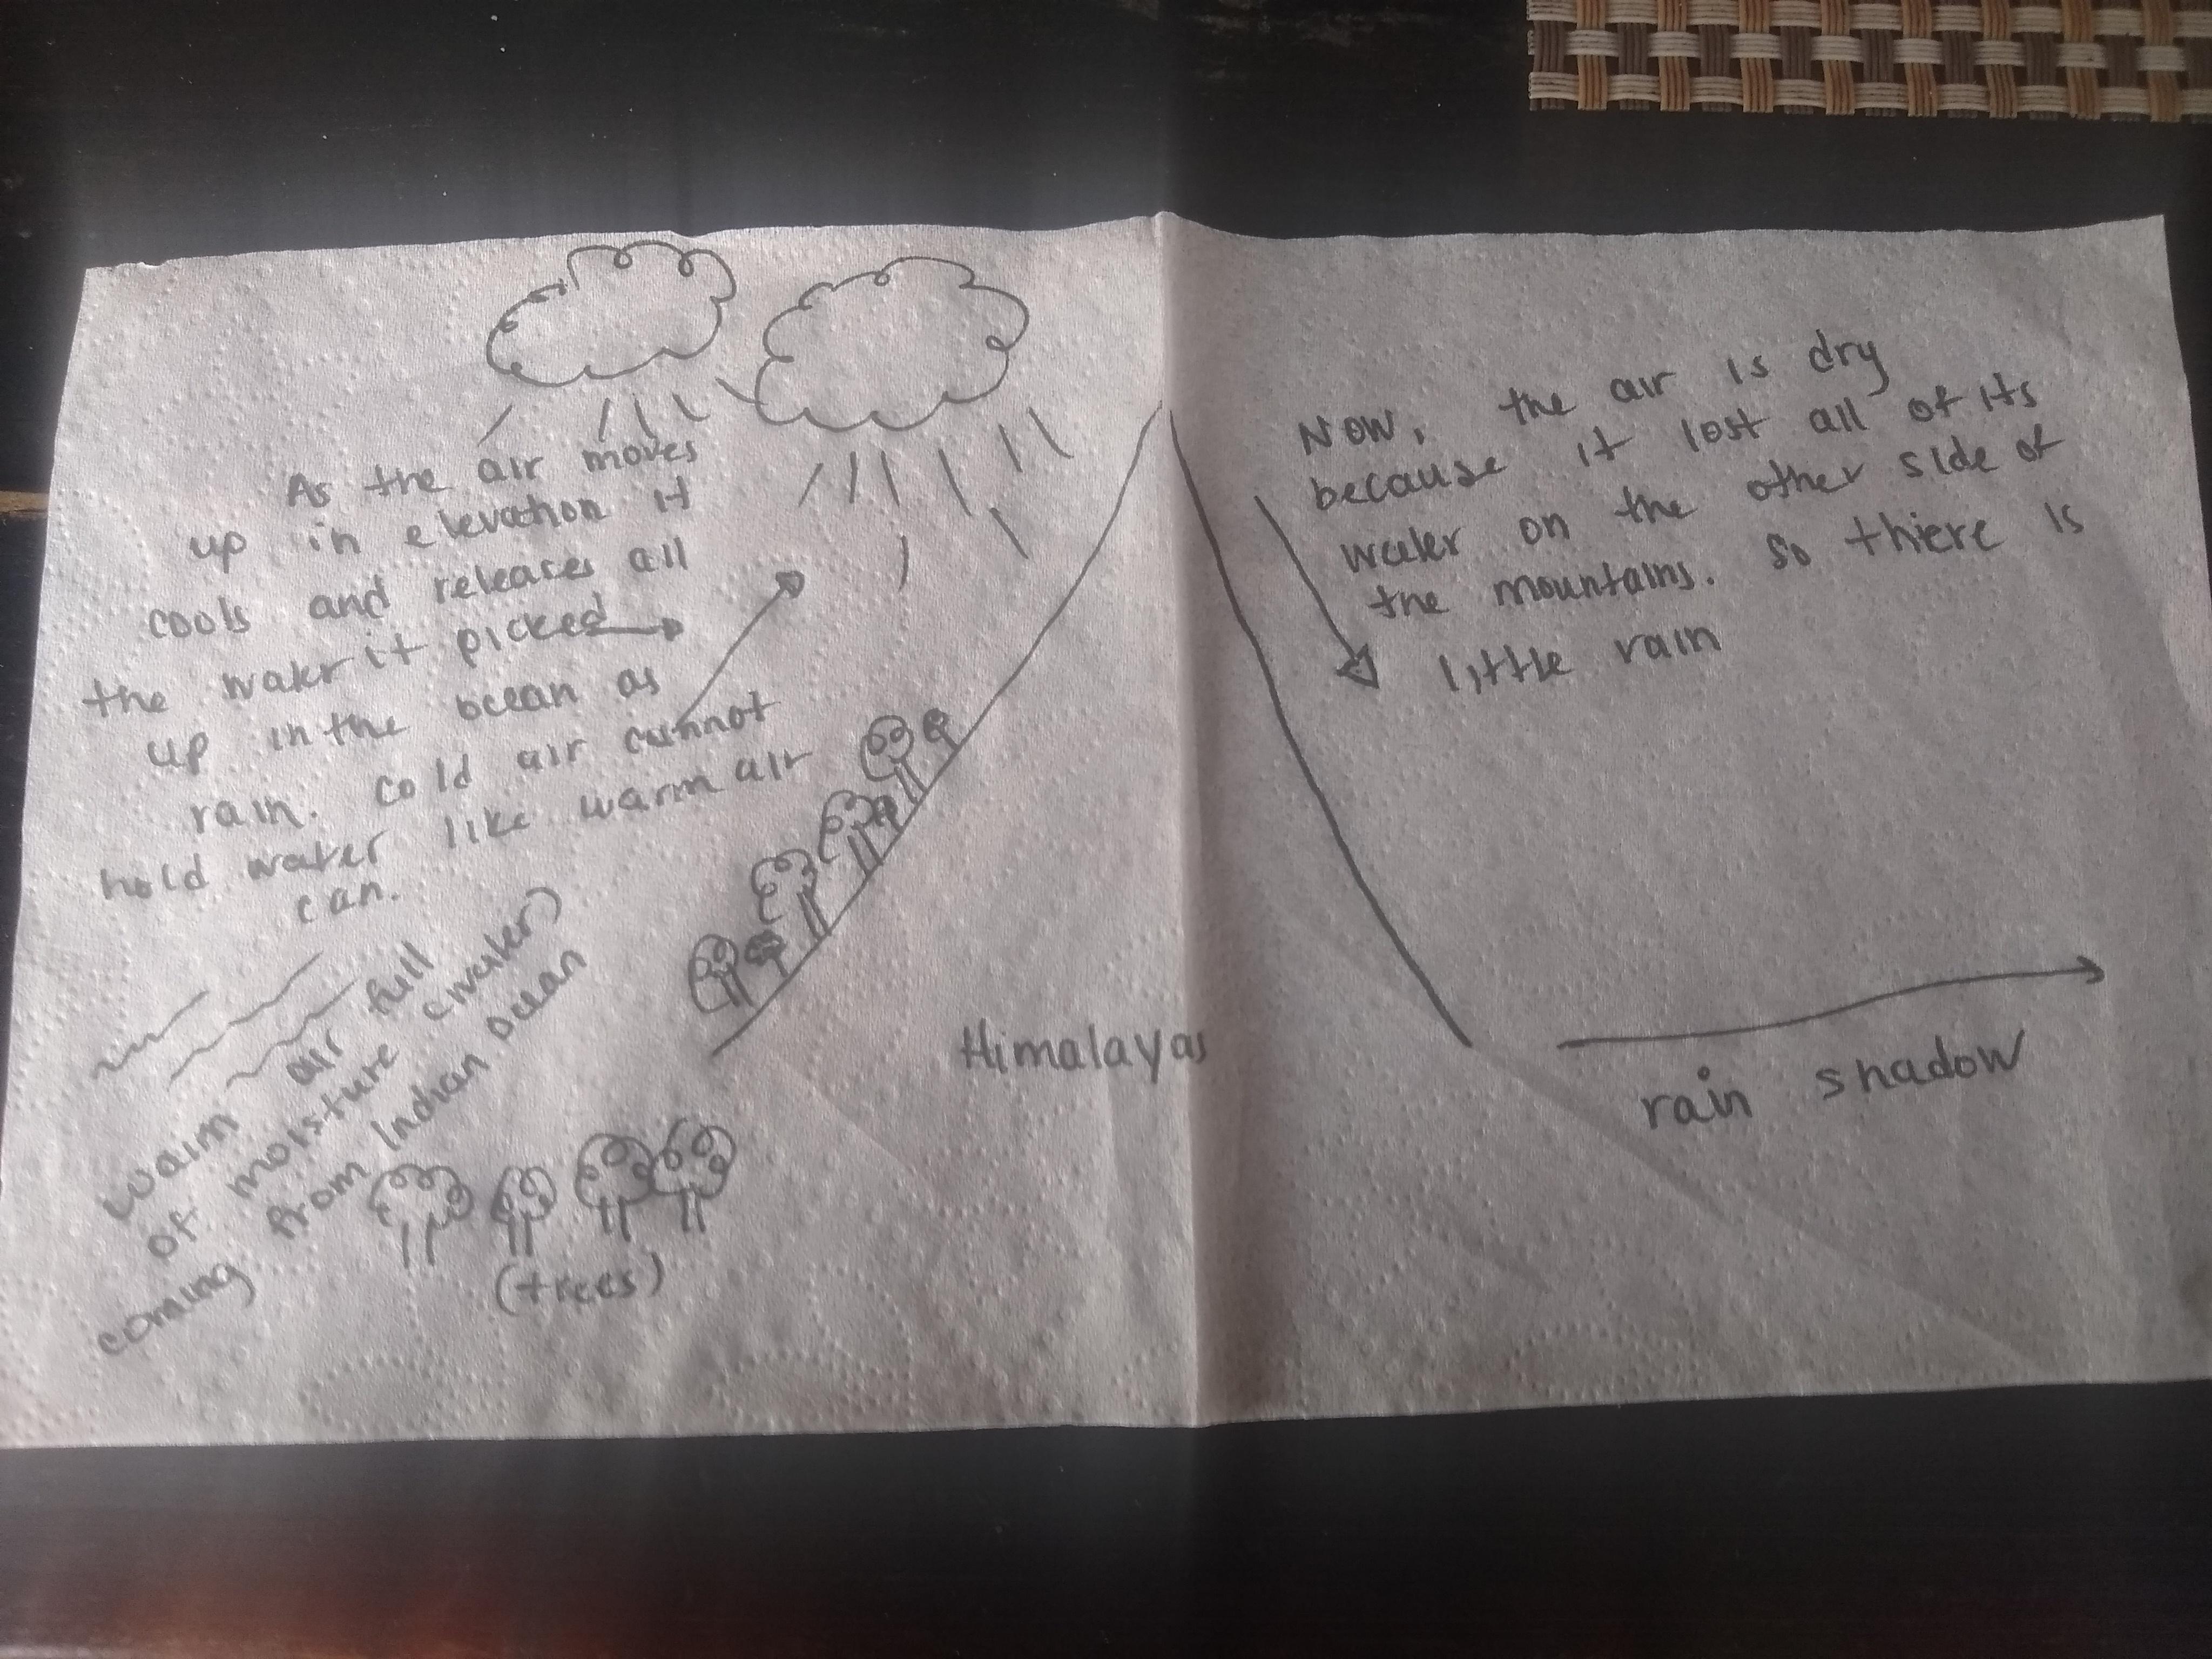 As the air moves
up in elevation it
cools and releases all
the water it picked
up in the ocean as
rain. Cold air cannot
hold water like warm air
can.
Warm air full
of moisture (water)
coming from Indian Ocean
(trees)
Himalayas
Now, the air is dry
because it lost all of its
water on the other side of
the mountains. So thiere is
little rain
rain shadow